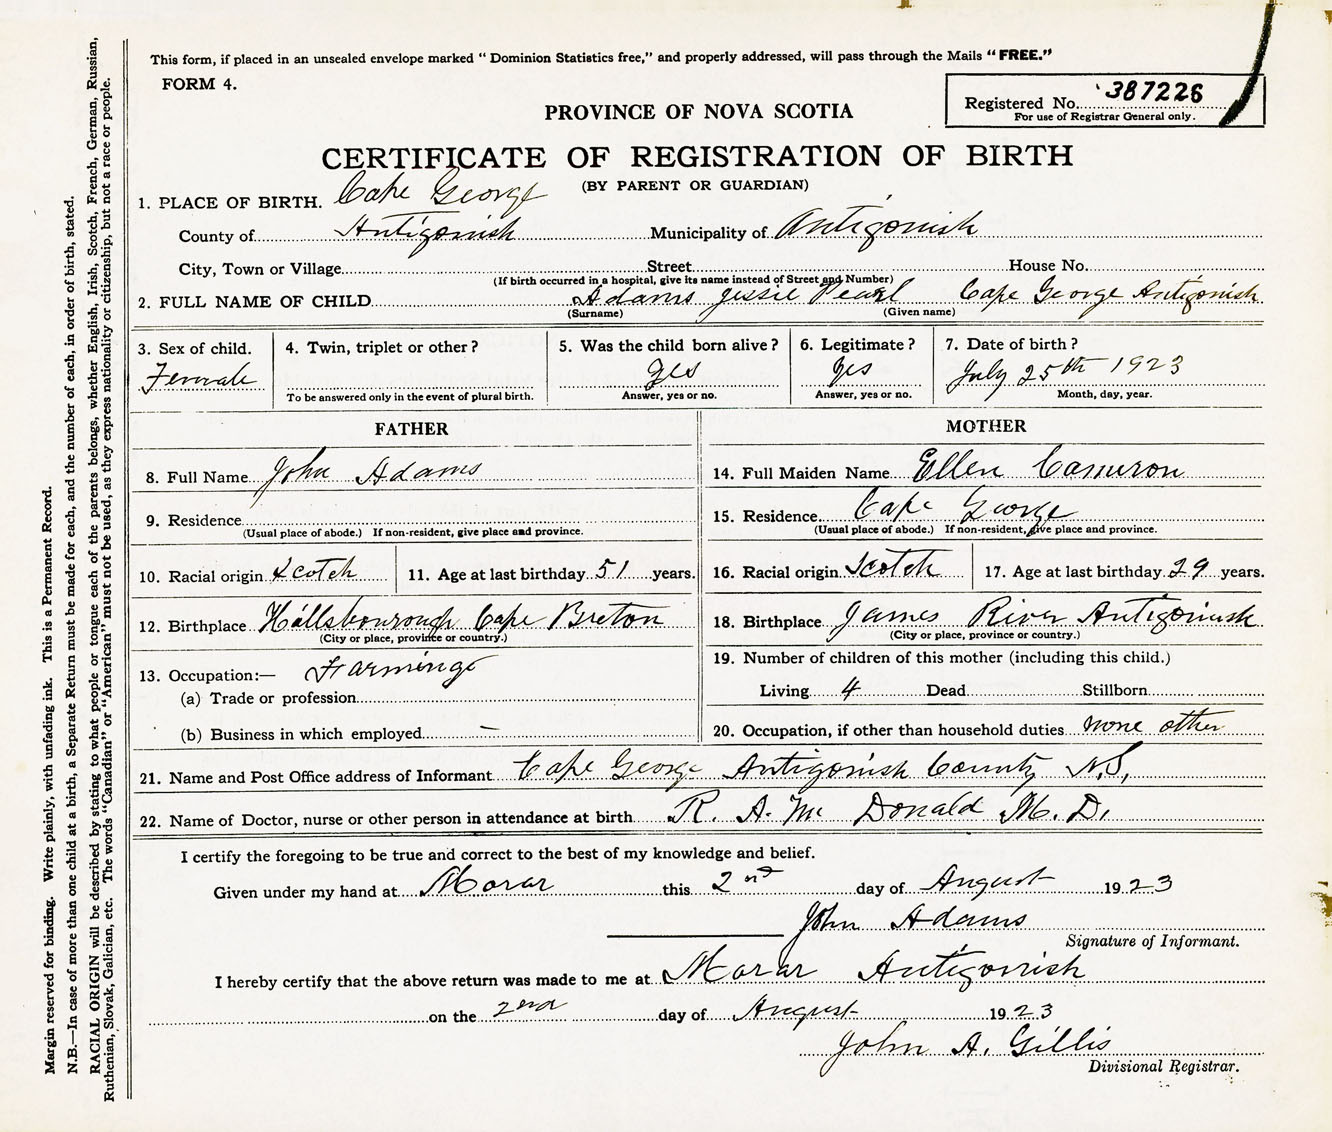 This form, if placed in an unsealed envelope marked “ Dominion Statistics free,” and properly addressed, will pass through the Mails “ FREE.”
FORM 4.
Registered No. 387226
For use of Registrar General only.
PROVINCE OF NOVA SCOTIA
CERTIFICATE OF REGISTRATION OF BIRTH
(BY PARENT OR GUARDIAN)
1. PLACE OF BIRTH. Cape George
County of Antigonish Municipality of Antigonish
City, Town or Village Street House No.
(If birth occurred in a hospital, give its name instead of Street and Number)
2. FULL NAME OF CHILD Adams Jessie Pearl Cape George Antigonish
(Surname) (Given name)
3. Sex of child. 4. Twin, triplet or other? 5. Was the child born alive? 6. Legitimate? 7. Date of birth?
Female yes yes July 25th 1923
To be answered only in the event of plural birth. Answer, yes or no. Answer, yes or no. Month, day, year.
FATHER
8. Full Name John Adams
9. Residence
(Usual place of abode.) If non-resident, give place and province.
10. Racial origin Scotch 11. Age at last birthday 51 years.
12. Birthplace Hillsbourough Cape Breton
(City or place, province or country.)
13. Occupation:— Farming
(a) Trade or profession
(b) Business in which employed —
MOTHER
14. Full Maiden Name Ellen Cameron
15. Residence Cape George
(Usual place of abode.) If non-resident, give place and province.
16. Racial origin Scotch 17. Age at last birthday 29 years.
18. Birthplace James River Antigonish
(City or place, province or country.)
19. Number of children of this mother (including this child.)
Living 4 Dead Stillborn
20. Occupation, if other than household duties none other
21. Name and Post Office address of Informant Cape George Antigonish County N.S,
22. Name of Doctor, nurse or other person in attendance at birth R. A. Mc Donald M. D.
I certify the foregoing to be true and correct to the best of my knowledge and belief.
Given under my hand at Morar this 2nd day of August 1923
John Adams
Signature of Informant.
I hereby certify that the above return was made to me at Morar Antigonish
on the 2nd day of August 1923
John A. Gillis
Divisional Registrar.
Margin reserved for binding. Write plainly, with unfading ink. This is a Permanent Record.
N.B.—In case of more than one child at a birth, a Separate Return must be made for each, and the number of each, in order of birth, stated.
RACIAL ORIGIN will be described by stating to what people or tongue each of the parents belongs, whether English, Irish, Scotch, French, German, Russian,
Ruthenian, Slovak, Galician, etc. The words “Canadian” or “American” must not be used, as they express nationality or citizenship, but not a race or people.